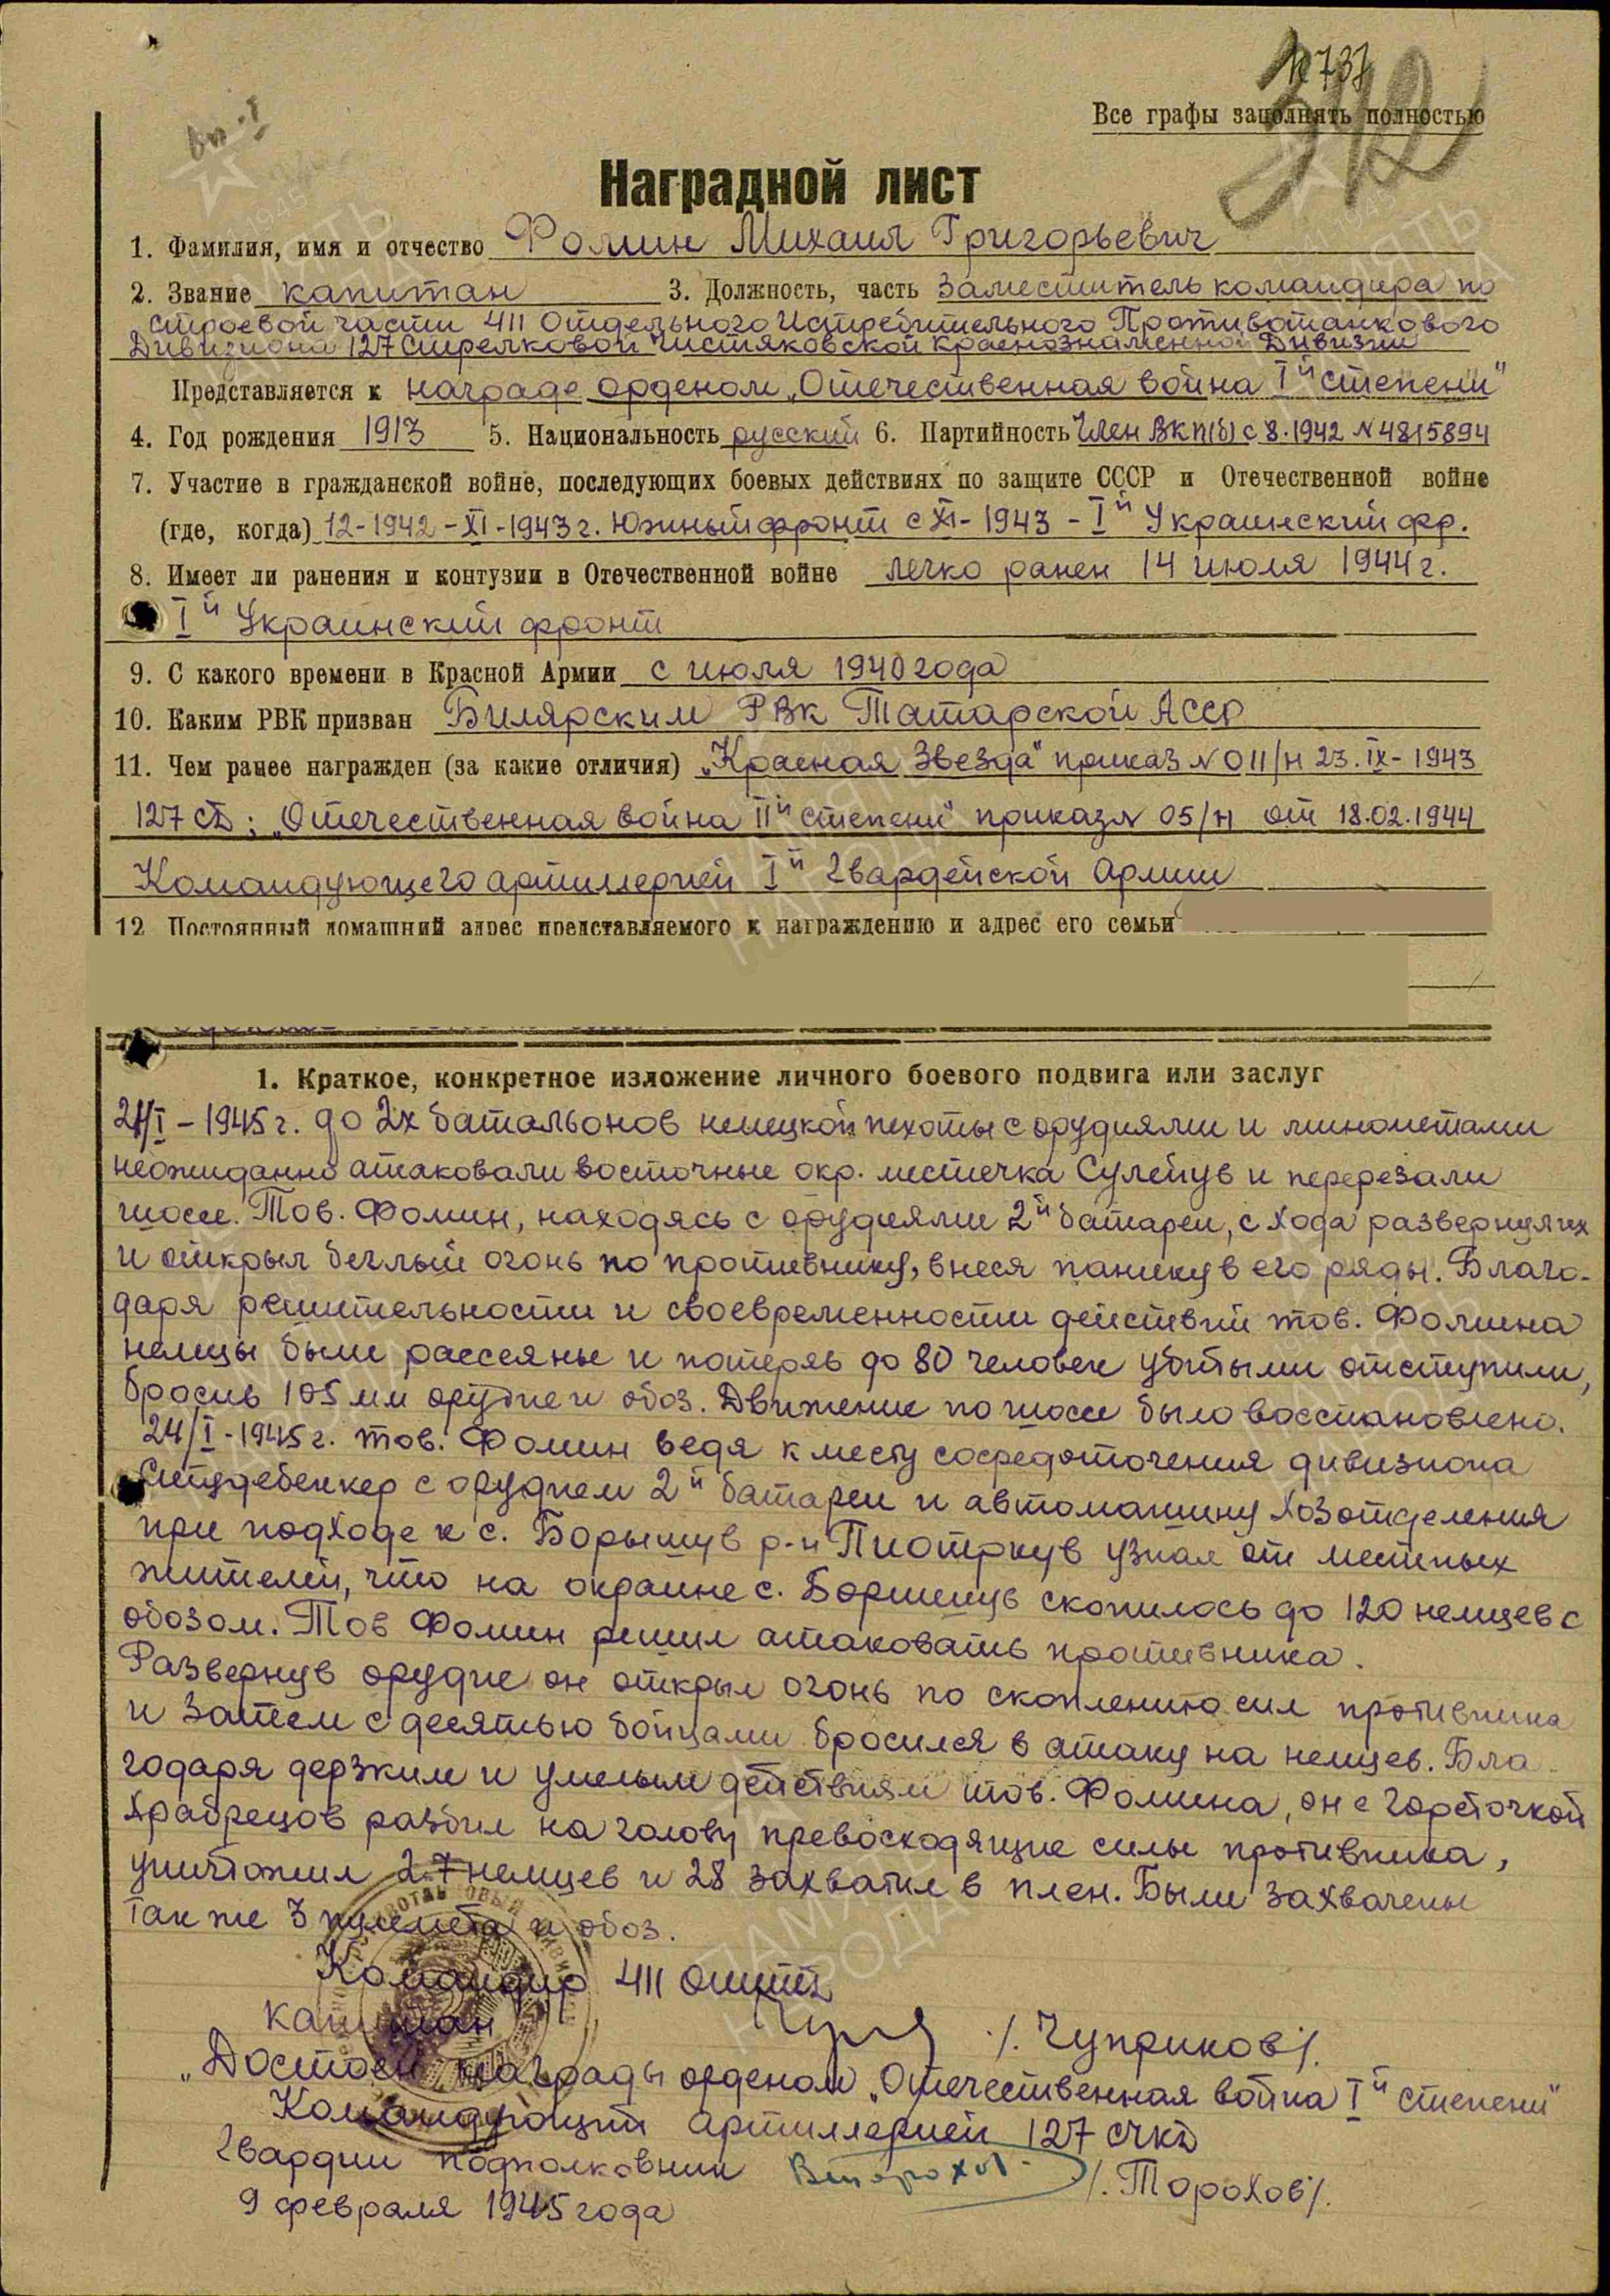 № 737
342
Все графы заполнять полностью
Наградной лист
1. Фамилия, имя и отчество Фомин Михаил Григорьевич
2. Звание капитан 3. Должность, часть Заместитель командира по
строевой части 411 Отдельного Истребительного Противотанкового
Дивизиона 127 Стрелковой Чистяковской Краснознаменной Дивизии
Представляется к награде орденом „Отечественная война I й степени"
4. Год рождения 1913 5. Национальность русский 6. Партийность Член ВКП(б) с 8.1942 N 4815894
7. Участие в гражданской войне, последующих боевых действиях по защите СССР и Отечественной войне
(где, когда) 12-1942 - XI-1943 г. Южный фронт с XI-1943 - I й Украинский фр.
8. Имеет ли ранения и контузии в Отечественной войне легко ранен 14 июля 1944 г.
I й Украинский фронт
9. С какого времени в Красной Армии с июля 1940 года
10. Каким РВК призван Билярским РВК Татарской АССР
11. Чем ранее награжден (за какие отличия) „Красная Звезда" приказ N 011/н 23.IX-1943
127 сд; „Отечественная война II й степени" приказ N 05/н от 18.02.1944
Командующего артиллерией I й Гвардейской Армии
12 Постоянный домашний адрес представляемого к награждению и адрес его семьи
1. Краткое, конкретное изложение личного боевого подвига или заслуг
21/I - 1945 г. до 2х батальонов немецкой пехоты с орудиями и минометами
неожиданно атаковали восточные окр. местечка Сулеюв и перерезали
шоссе. Тов. Фомин, находясь с орудиями 2 й батареи, с хода развернул их
и открыл беглый огонь по противнику, внеся панику в его ряды. Благо-
даря решительности и своевременности действий тов. Фомина
немцы были рассеяны и потеряв до 80 человек убитыми отступили,
бросив 105 мм орудие и обоз. Движение по шоссе было восстановлено.
24/I-1945 г. тов. Фомин ведя к месту сосредоточения дивизиона
Студебеккер с орудием 2 й батареи и автомашину хозотделения
при подходе к с. Борышув р-н Пиотркув узнал от местных
жителей, что на окраине с. Боршещув скопилось до 120 немцев с
обозом. Тов Фомин решил атаковать противника.
Развернув орудие он открыл огонь по скоплению сил противника
и затем с десятью бойцами бросился в атаку на немцев. Бла-
годаря дерзким и умелым действиям тов. Фомина, он с горсточкой
храбрецов разбил на голову превосходящие силы противника,
уничтожил 27 немцев и 28 захватил в плен. Были захвачены
так же 3 пулемета и обоз.
Командир 411 ОИПТД
капитан /. Чуприков/.
„Достоен награды орденом „Отечественная война I й степени"
Командующий артиллерией 127 СЧКД
Гвардии подполковник ВТорохов /. Торохов/.
9 февраля 1945 года